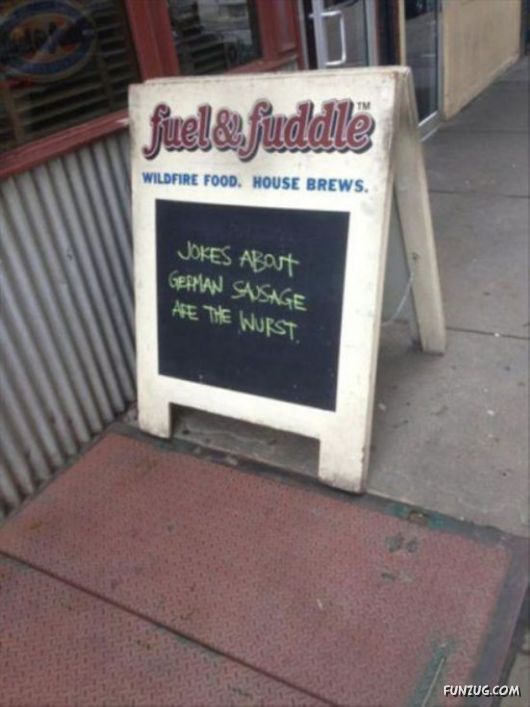 fuel & fuddle™
WILDFIRE FOOD. HOUSE BREWS.
JOKES ABOUT
GERMAN SAUSAGE
ARE THE WURST.
FUNZUG.COM